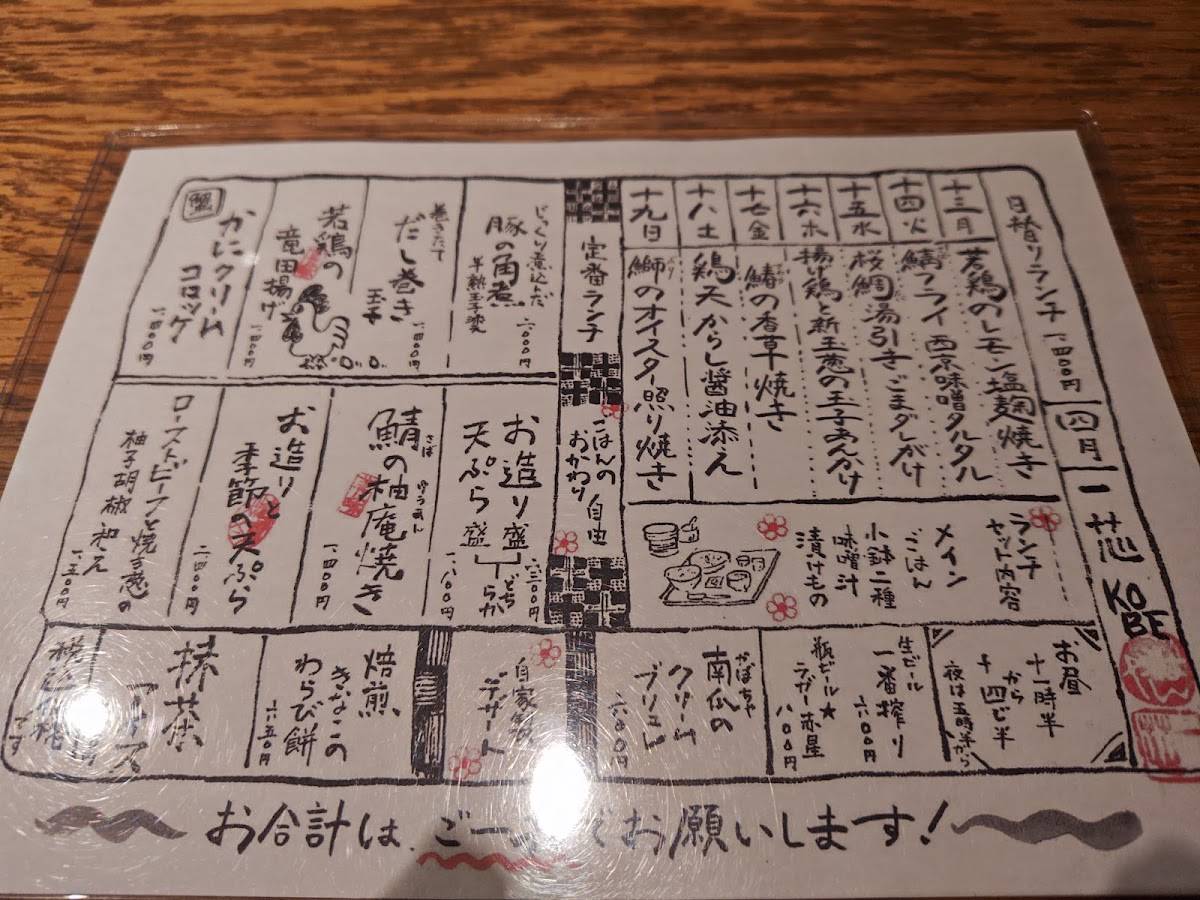 一芯
KOBE
四月
日替りランチ 一、四〇〇円
十三月
若鶏のレモン塩麹焼き
十四火
鯖フライ西京味噌タルタル
十五水
桜鯛湯引きごまダレがけ
十六木
揚げ鶏と新玉葱の玉子あんかけ
十七金
鰆の香草焼き
十八土
鶏天からし醤油添え
十九日
鰤のオイスター照り焼き
ぶり
ランチ
セット内容
メイン
ごはん
小鉢二種
味噌汁
漬けもの
定番ランチ
ごはんの
おかわり
自由
じっくり煮込んだ
豚の角煮
半熟玉子
二、〇〇〇円
巻きたて
だし巻き
玉子
一、四〇〇円
若鶏の
竜田揚げ
一、四〇〇円
蟹
かにクリーム
コロッケ
一、四〇〇円
お造り盛
天ぷら盛
どちらか
鯖の柚庵焼き
さば
ゆうあん
一、四〇〇円
お造りと
季節の天ぷら
二、四〇〇円
ローストビーフと焼き葱の
柚子胡椒和え
お昼
十一時半
から
十四じ半
夜は五時半から
生ビール
一番搾り
六〇〇円
瓶ビール★
ラガー赤星
八〇〇円
南瓜の
かぼちゃ
クリーム
ブリュレ
六〇〇円
自家製
デザート
焙煎
きなこの
わらび餅
六五〇円
抹茶
アイス
税込価格
です
お合計は、ご一でお願いします!